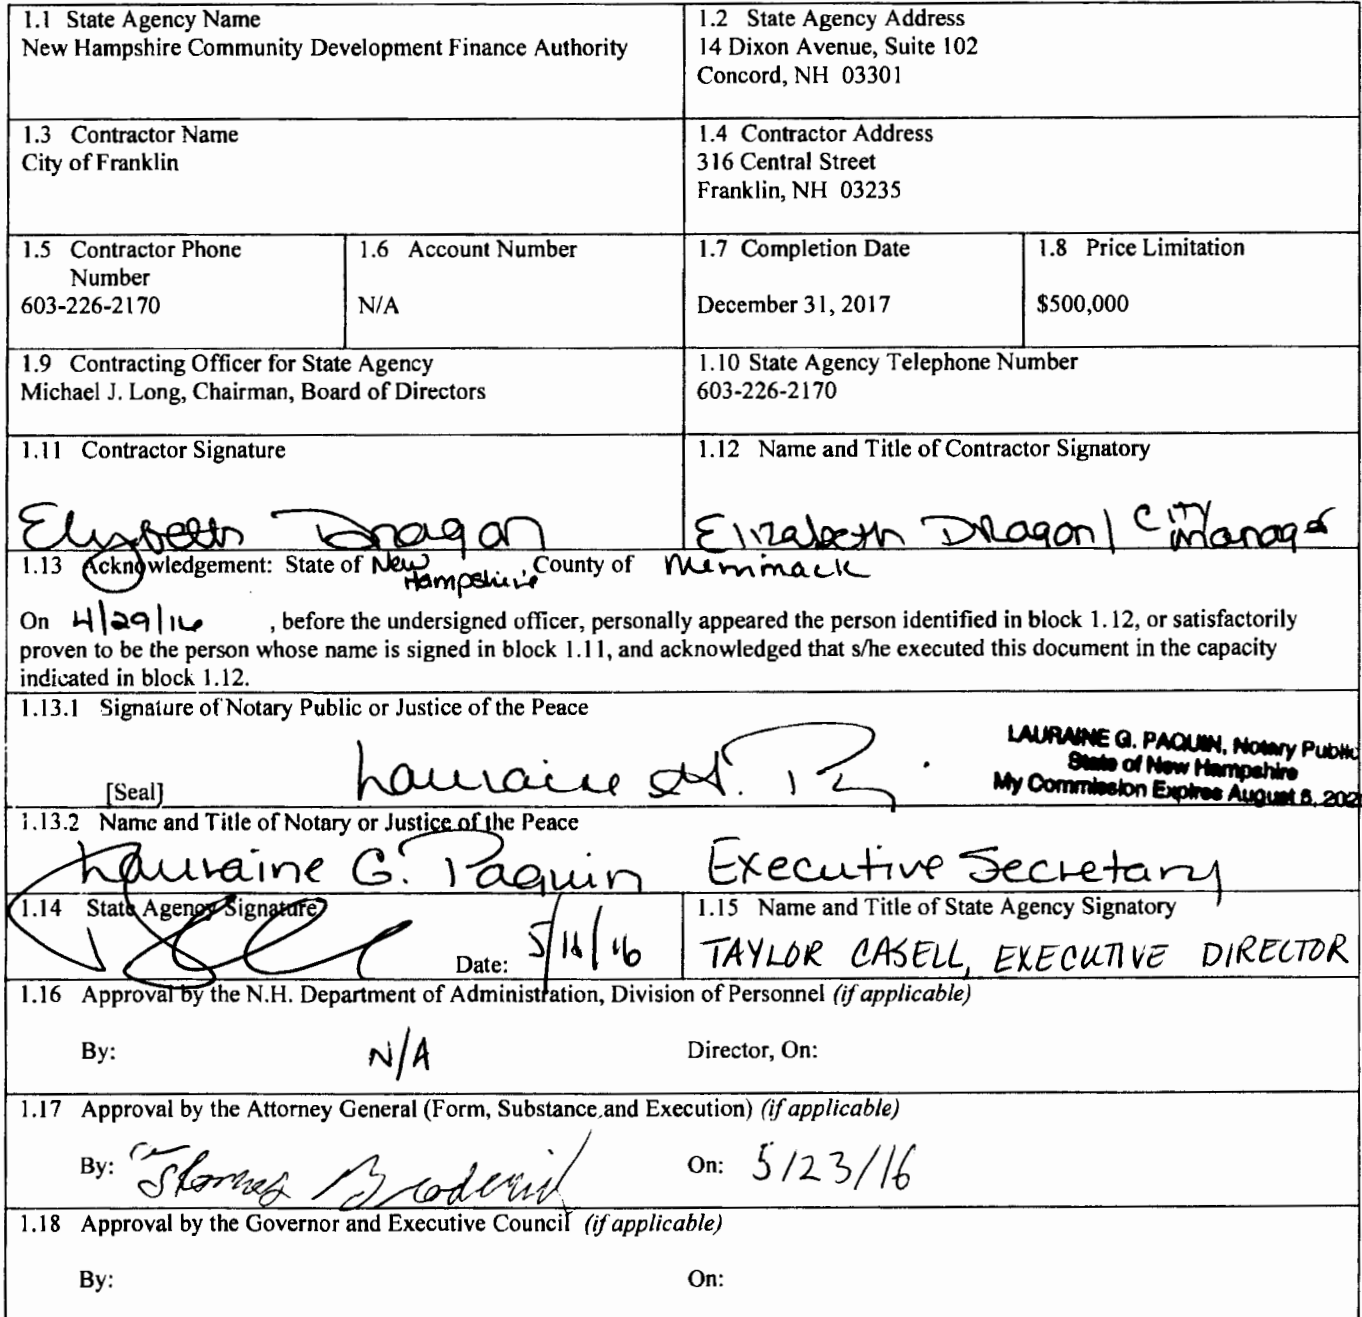 1.1 State Agency Name
New Hampshire Community Development Finance Authority
1.2 State Agency Address
14 Dixon Avenue, Suite 102
Concord, NH 03301
1.3 Contractor Name
City of Franklin
1.4 Contractor Address
316 Central Street
Franklin, NH 03235
1.5 Contractor Phone
Number
603-226-2170
1.6 Account Number
N/A
1.7 Completion Date
December 31, 2017
1.8 Price Limitation
$500,000
1.9 Contracting Officer for State Agency
Michael J. Long, Chairman, Board of Directors
1.10 State Agency Telephone Number
603-226-2170
1.11 Contractor Signature
Elizabeth Dragon
1.12 Name and Title of Contractor Signatory
Elizabeth Dragon / City
Manager
1.13 Acknowledgement: State of New Hampshire, County of Merrimack
On 4/29/16 , before the undersigned officer, personally appeared the person identified in block 1.12, or satisfactorily
proven to be the person whose name is signed in block 1.11, and acknowledged that s/he executed this document in the capacity
indicated in block 1.12.
1.13.1 Signature of Notary Public or Justice of the Peace
[Seal]
Lauraine G. P
LAURAINE G. PAQUIN, Notary Public
State of New Hampshire
My Commission Expires August 5, 202
1.13.2 Name and Title of Notary or Justice of the Peace
Lauraine G. Paquin Executive Secretary
1.14 State Agency Signature
Date: 5/16/16
1.15 Name and Title of State Agency Signatory
TAYLOR CASELL, EXECUTIVE DIRECTOR
1.16 Approval by the N.H. Department of Administration, Division of Personnel (if applicable)
By: N/A Director, On:
1.17 Approval by the Attorney General (Form, Substance and Execution) (if applicable)
By: Thomas Broderick On: 5/23/16
1.18 Approval by the Governor and Executive Council (if applicable)
By: On: